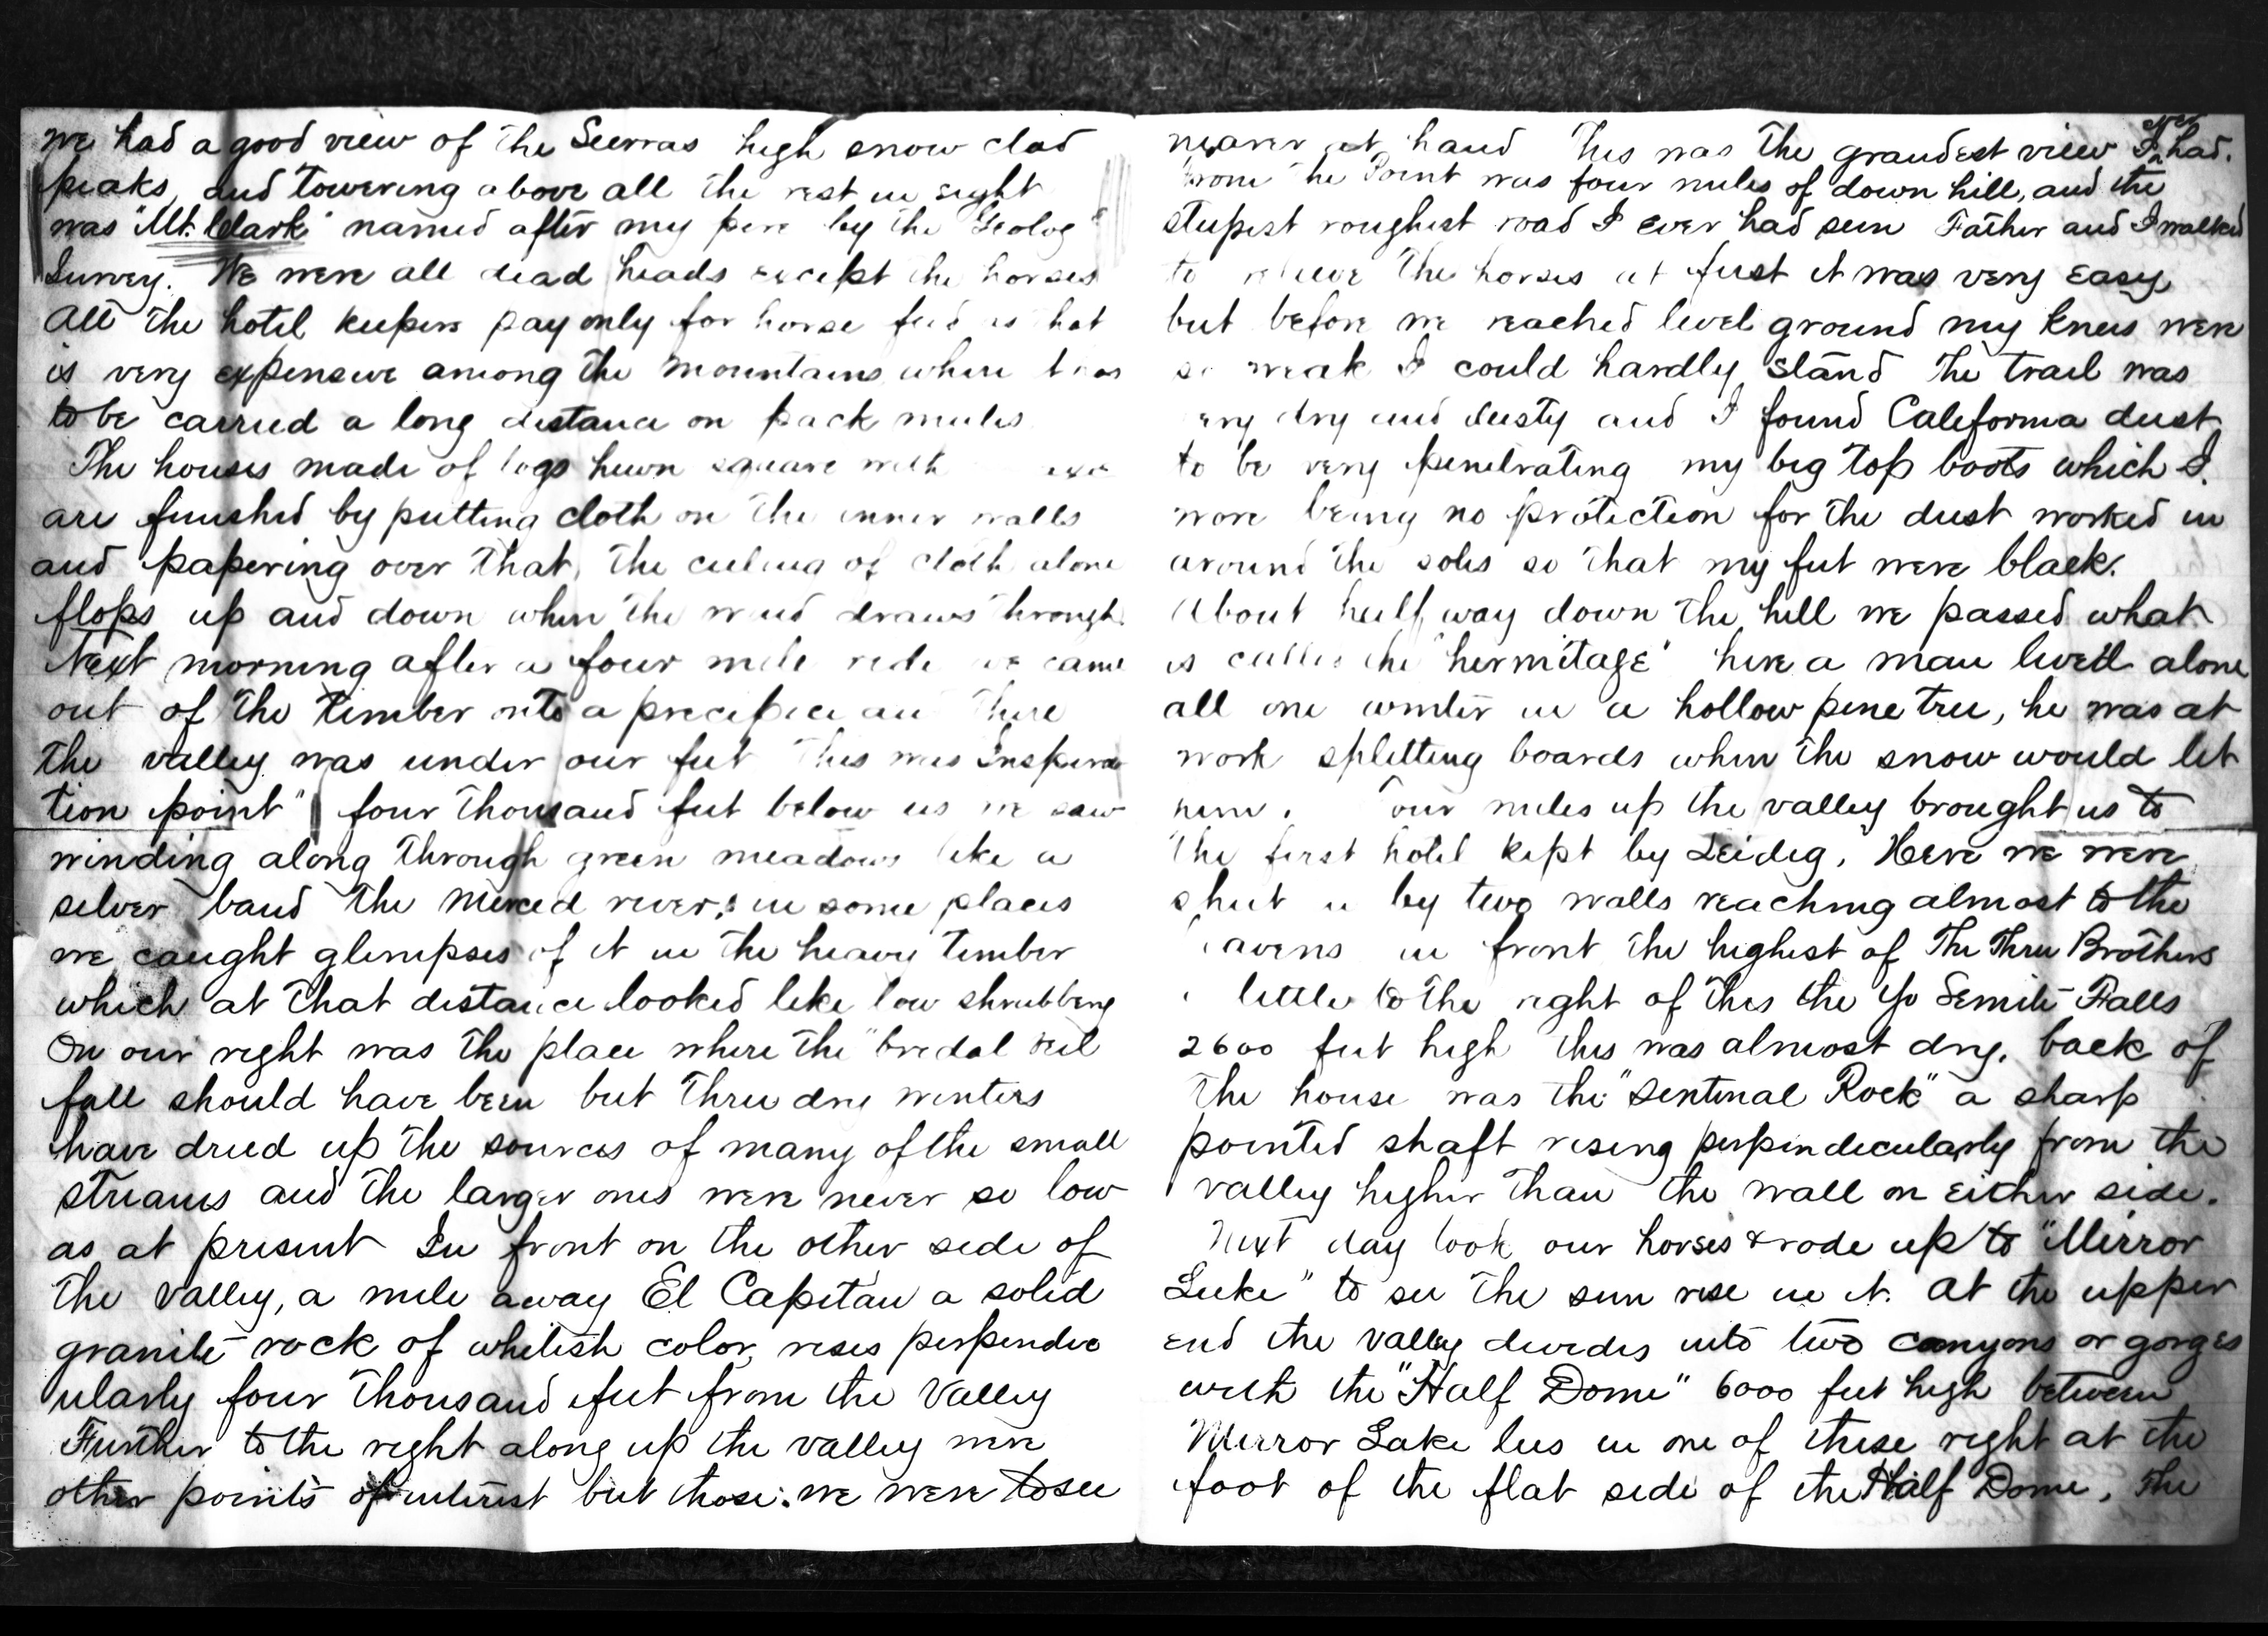 we had a good view of the Sierras high snow clad
peaks, and towering above all the rest in sight
was "Mt. Clark" named after my pere by the "Geolog"
Survey. We were all dead heads except the horses
All the hotel keepers pay only for horse feed as that
is very expensive among the mountains where
to be carried a long distance on pack mules
The houses made of logs hewn square with
are finished by putting cloth on the inner walls
and papering over that, the ceiling of cloth alone
flops up and down when the wind draws through.
Next morning after a four mile ride we came
out of the timber onto a precipice and there
the valley was under our feet This was Inspira
tion point" four thousand feet below us we saw
winding along through green meadows like a
silver band the Merced river, in some places
we caught glimpses of it in the heavy timber
which at that distance looked like low shrubbery
On our right was the place where the "bridal veil
fall should have been but three dry winters
have dried up the sources of many of the small
streams and the larger ones were never so low
as at present In front on the other side of
the valley, a mile away El Capitan a solid
granite rock of whitish color, rises perpendic
ularly four thousand feet from the Valley
Further to the right along up the valley were
other points of interest but those we were to see
nearer at hand This was the grandest view I ever had.
From the Point was four miles of down hill, and the
steepest roughest road I ever had seen Father and I walked
to relieve the horses at first it was very easy
but before we reached level ground my knees were
so weak I could hardly stand The trail was
very dry and dusty and I found California dust
to be very penetrating my big top boots which I
wore being no protection for the dust worked in
around the soles so that my feet were black.
About half way down the hill we passed what
is called the "hermitage" here a man lived alone
all one winter in a hollow pine tree, he was at
work splitting boards when the snow would let
him. Four miles up the valley brought us to
the first hotel kept by Leidig. Here we were
shut in by two walls reaching almost to the
heavens in front the highest of The Three Brothers
a little to the right of this the Yo Semite Falls
2600 feet high this was almost dry. back of
the house was the "Sentinal Rock" a sharp
pointed shaft rising perpindicularly from the
valley higher than the wall on either side.
Next day took our horses & rode up to "Mirror
Lake" to see the sun rise in it. At the upper
end the valley divides into two canyons or gorges
with the "Half Dome" 6000 feet high between
Mirror Lake lies in one of these right at the
foot of the flat side of the Half Dome. The